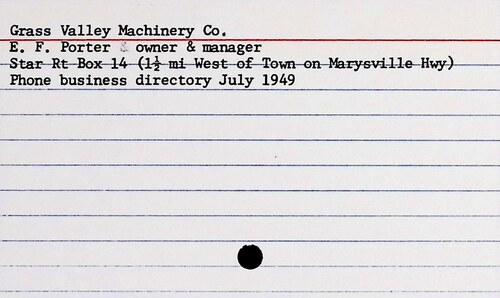 Grass Valley Machinery Co.
E. F. Porter & owner & manager
Star Rt Box 14 (1½ mi West of Town on Marysville Hwy)
Phone business directory July 1949